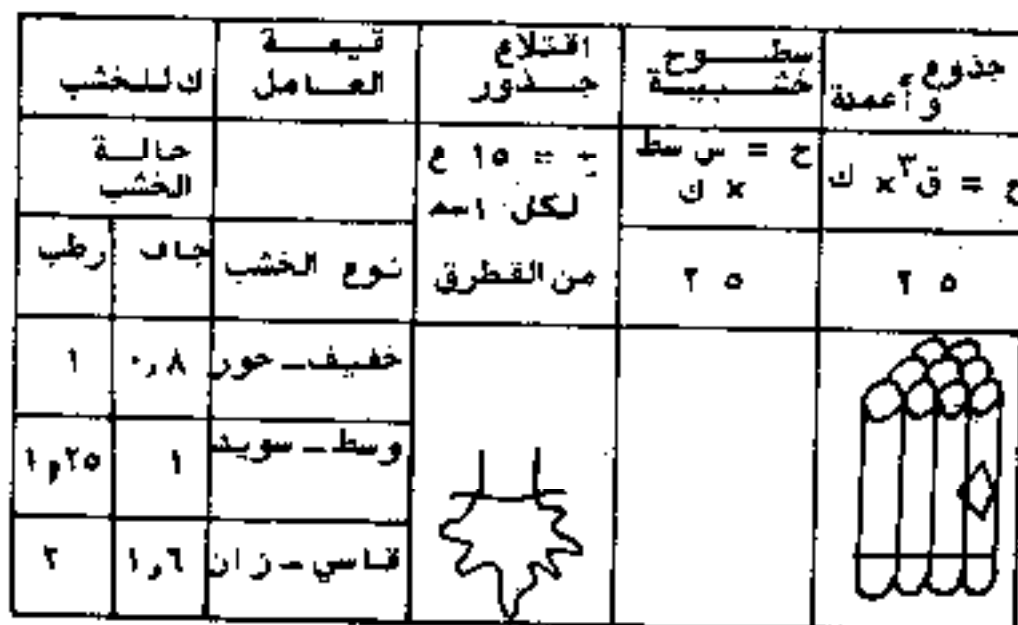 جذوع وأعمدة
سطوح خشبية
اقتلاع جذور
قيمة العامل
ك للخشب
ح = ق٣ × ك
ح = س سط × ك
= ١٥ ع
لكل ١سم
من القطر ق
حالة الخشب
٥ ٢
٥ ٢
نوع الخشب
جاف
رطب
خفيف - حور
٠,٨
١
وسط -
١
١,٢٥
قاسي - زان
١,٦
٢